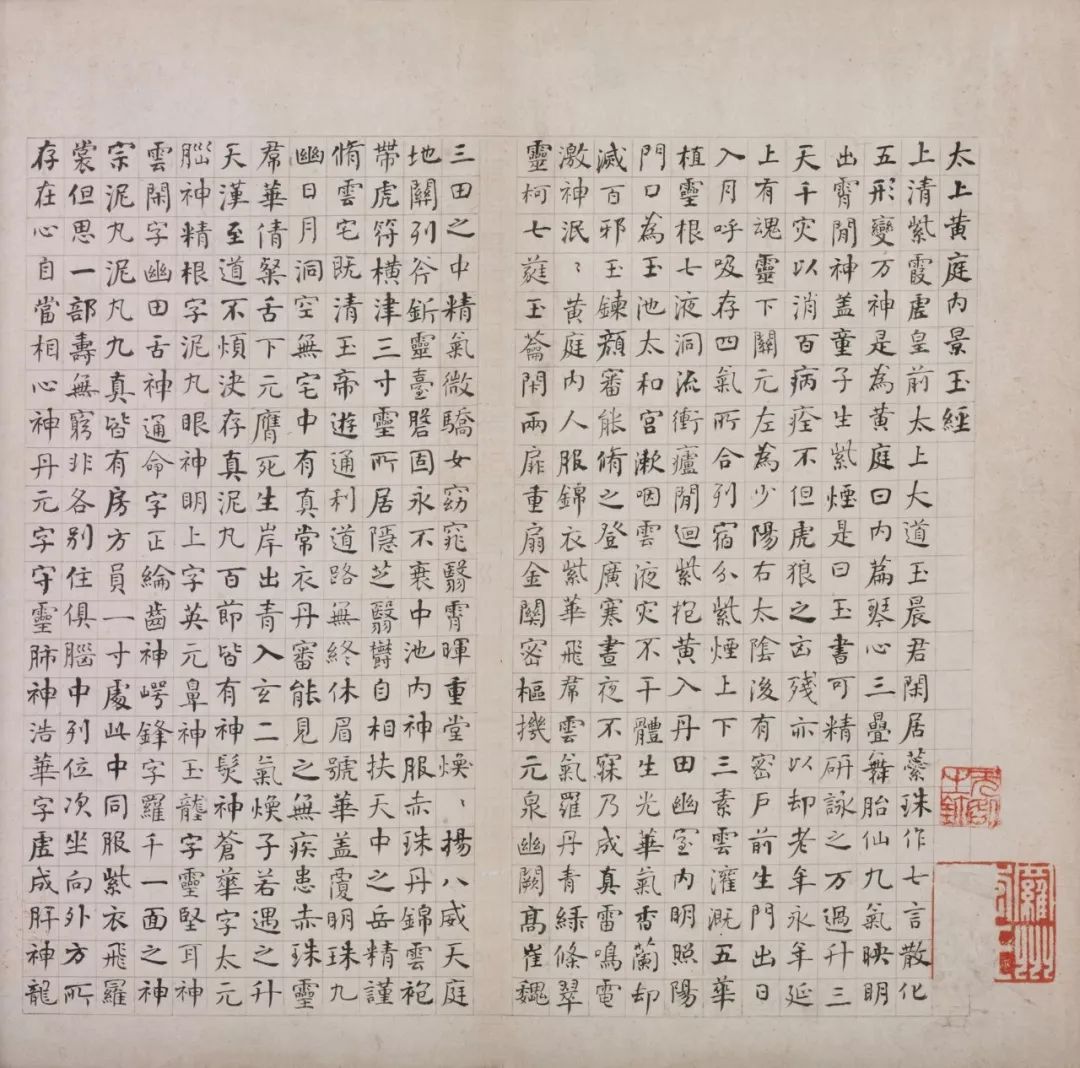 太上黄庭内景玉經
上清紫霞虛皇前太上大道玉晨君閑居蘂珠作七言散化
五形變万神是為黄庭曰内篇琴心三疊舞胎仙九氣映明
出霄間神盖童子生紫煙是曰玉書可精研詠之万過升三
天千灾以消百病痊不但虎狼之㐫殘亦以却老年永年延
上有魂靈下關元左為少陽右太陰後有密戶前生門出日
入月呼吸存四氣所合列宿分紫煙上下三素雲灌溉五華
植靈根七液洞流衝廬間迴紫抱黄入丹田幽室内明照陽
門口為玉池太和宫漱咽雲液灾不干體生光華氣香蘭却
滅百邪玉鍊顔審能脩之登廣寒晝夜不寐乃成真雷鳴電
激神泯〻黄庭内人服錦衣紫華飛帬雲氣羅丹青綠條翠
靈柯七蕤玉籥閉兩扉重扇金關密樞機元泉幽闕髙崔巍
三田之中精氣微驕女窈窕翳霄暉重堂煥〻揚八威天庭
地關列斧釿靈臺磐固永不衰中池内神服赤珠丹錦雲袍
帶虎符横津三寸靈所居隱芝翳欝自相扶天中之岳精謹
脩雲宅既清玉帝遊通利道路無終休眉號華盖覆明珠九
幽日月洞空無宅中有真常衣丹審能見之無疾患赤珠靈
帬華倩粲舌下元膺死生岸出青入玄二氣煥子若遇之升
天漢至道不煩決存真泥丸百節皆有神髮神蒼華字太元
腦神精根字泥丸眼神明上字英元鼻神玉壟字靈堅耳神
雲閑字幽田舌神通命字正綸齒神崿鋒字羅千一面之神
宗泥丸泥丸九真皆有房方員一寸處此中同服紫衣飛羅
裳但思一部壽無窮非各別住俱腦中列位次坐向外方所
存在心自當相心神丹元字守靈肺神浩華字虛成肝神龍